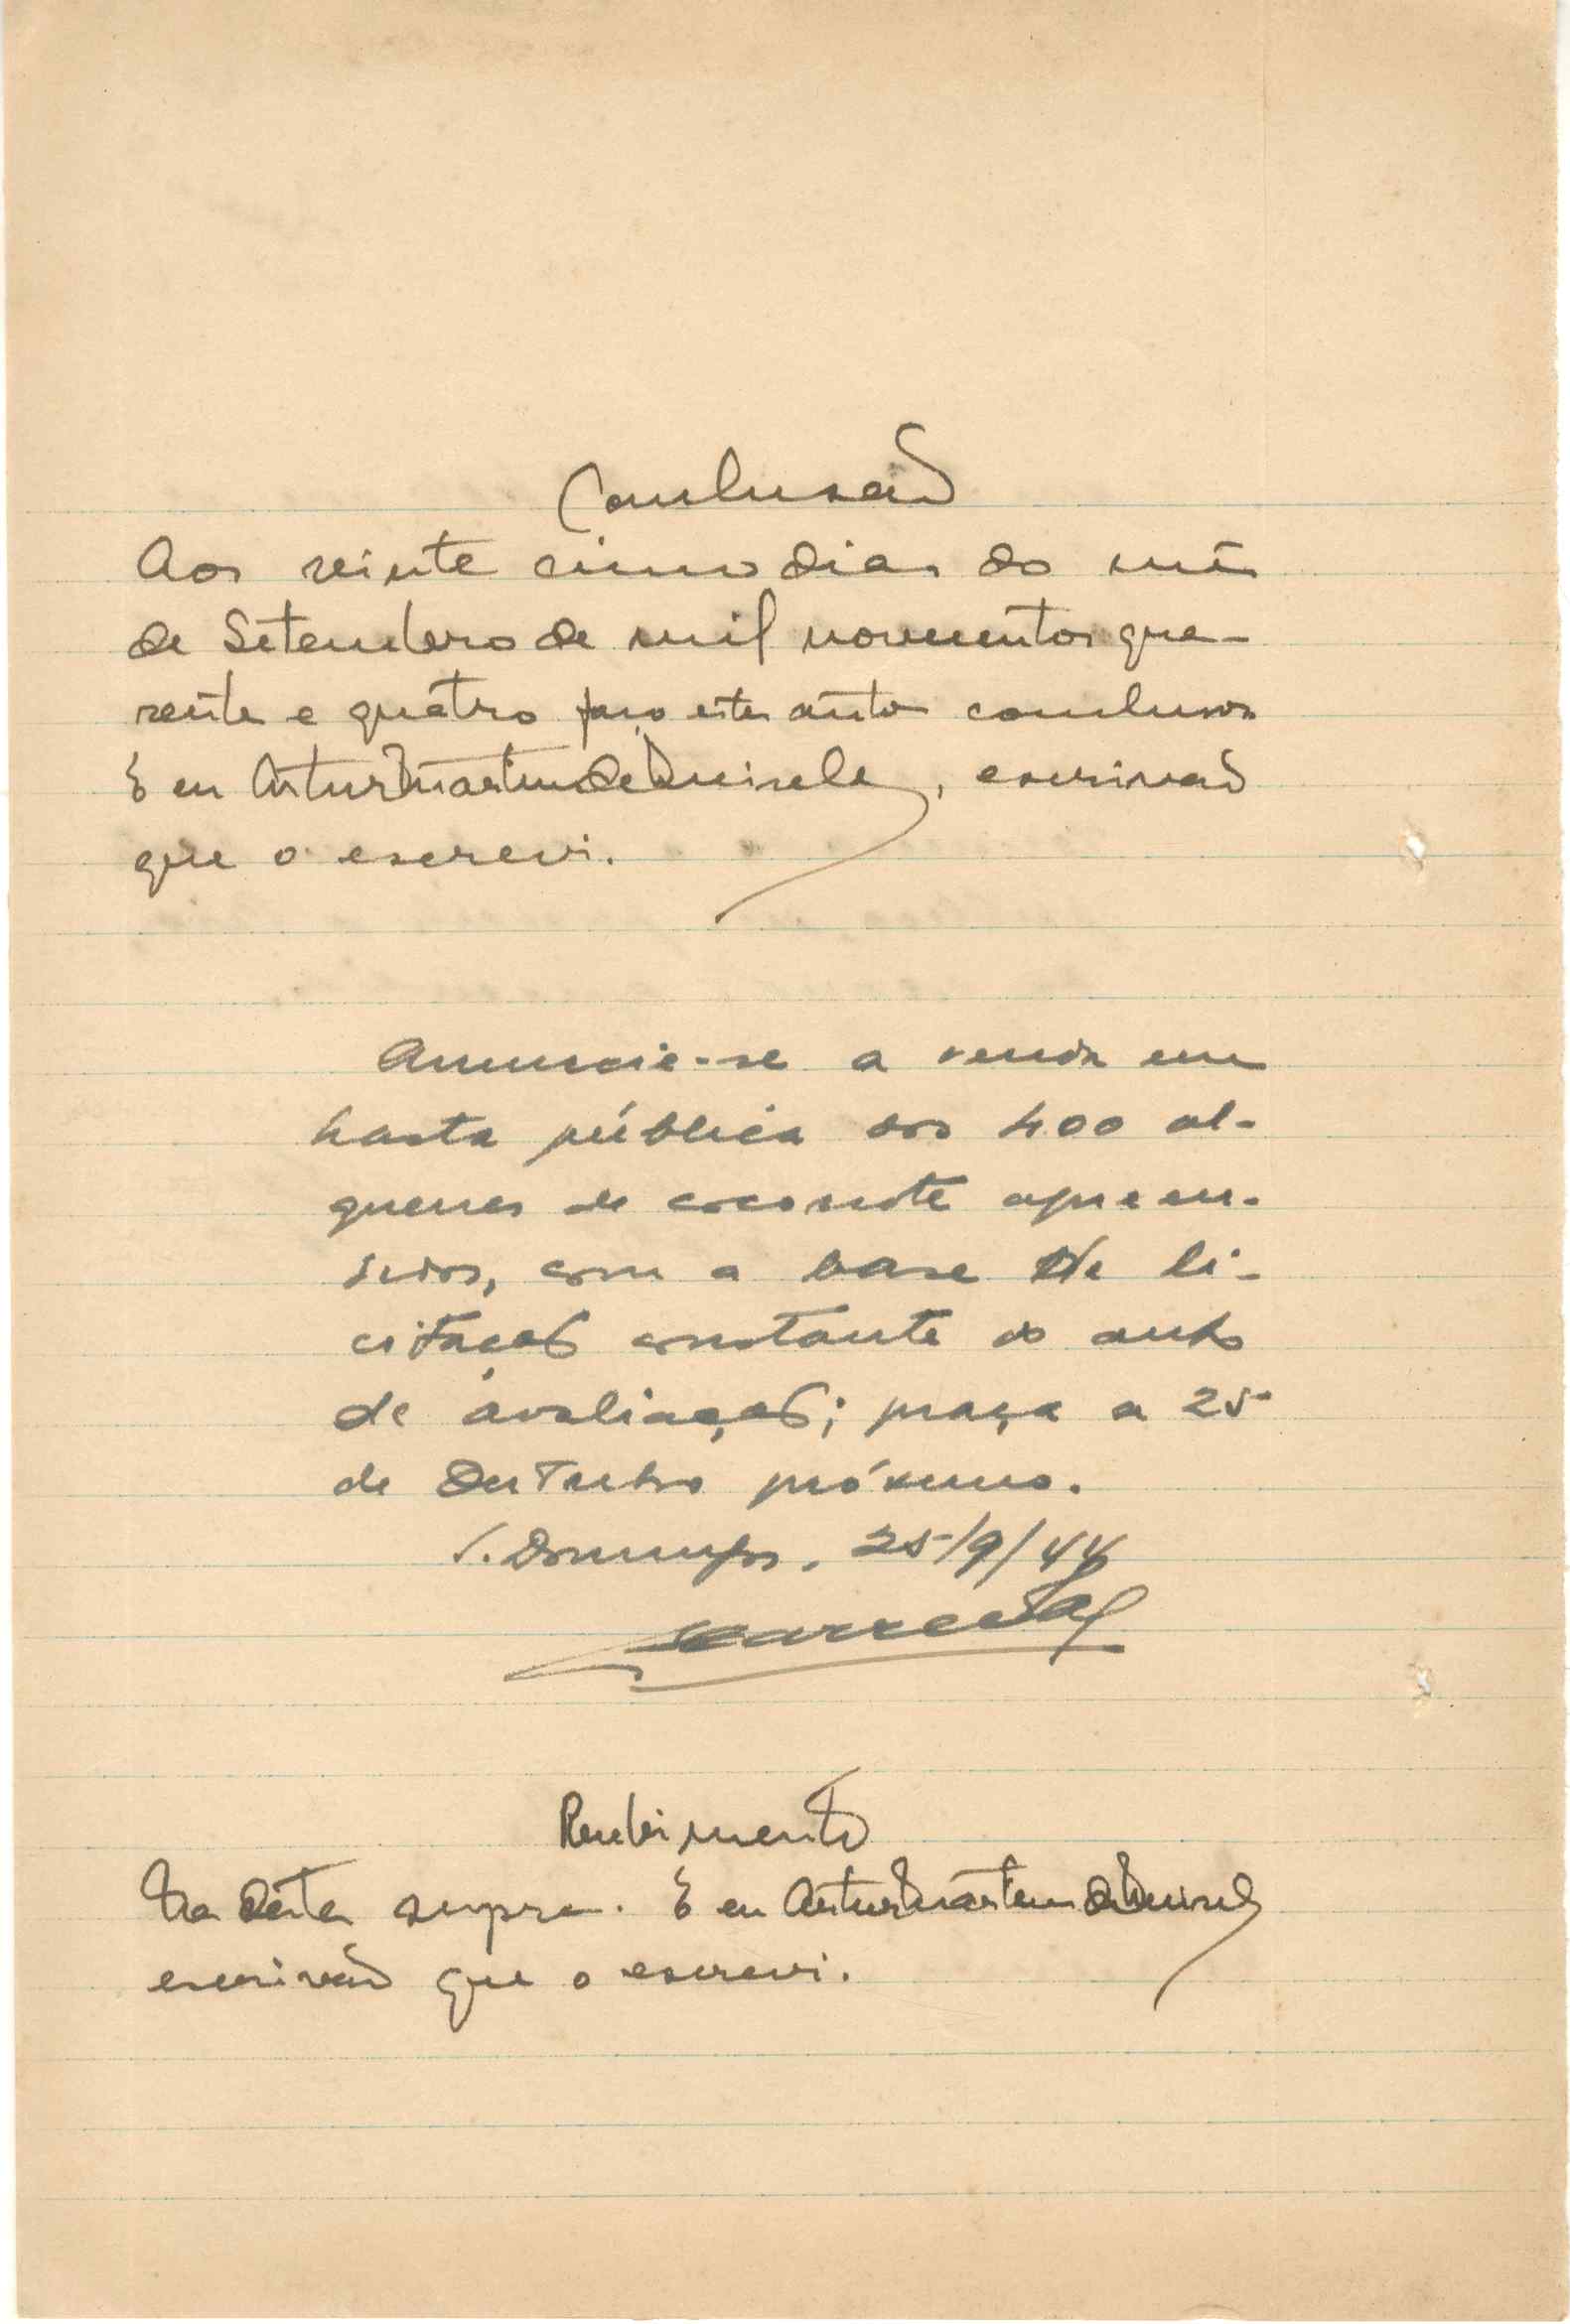 Conclusão
Aos vinte cinco dias do mês
de Setembro de mil novecentos qua-
renta e quatro faço estes autos conclusos
E eu Artur Martins de, escrivão
que o escrevi.
Anuncie-se a venda em
hasta pública dos 400 al-
queires de coconote apreen-
didos, com a base de li-
citação constante do auto
de avaliação; praça a 25
de Outubro próximo.
S. Domingos, 25/9/44
Recebimento
Na data supra. E eu Artur Martins de
escrivão que o escrevi.